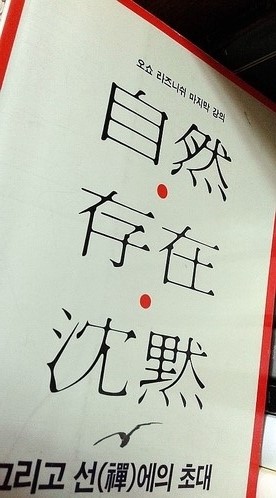 오쇼 라즈니쉬 마지막 강의
自然
存在
沈黙
그리고 선(禪)에의 초대